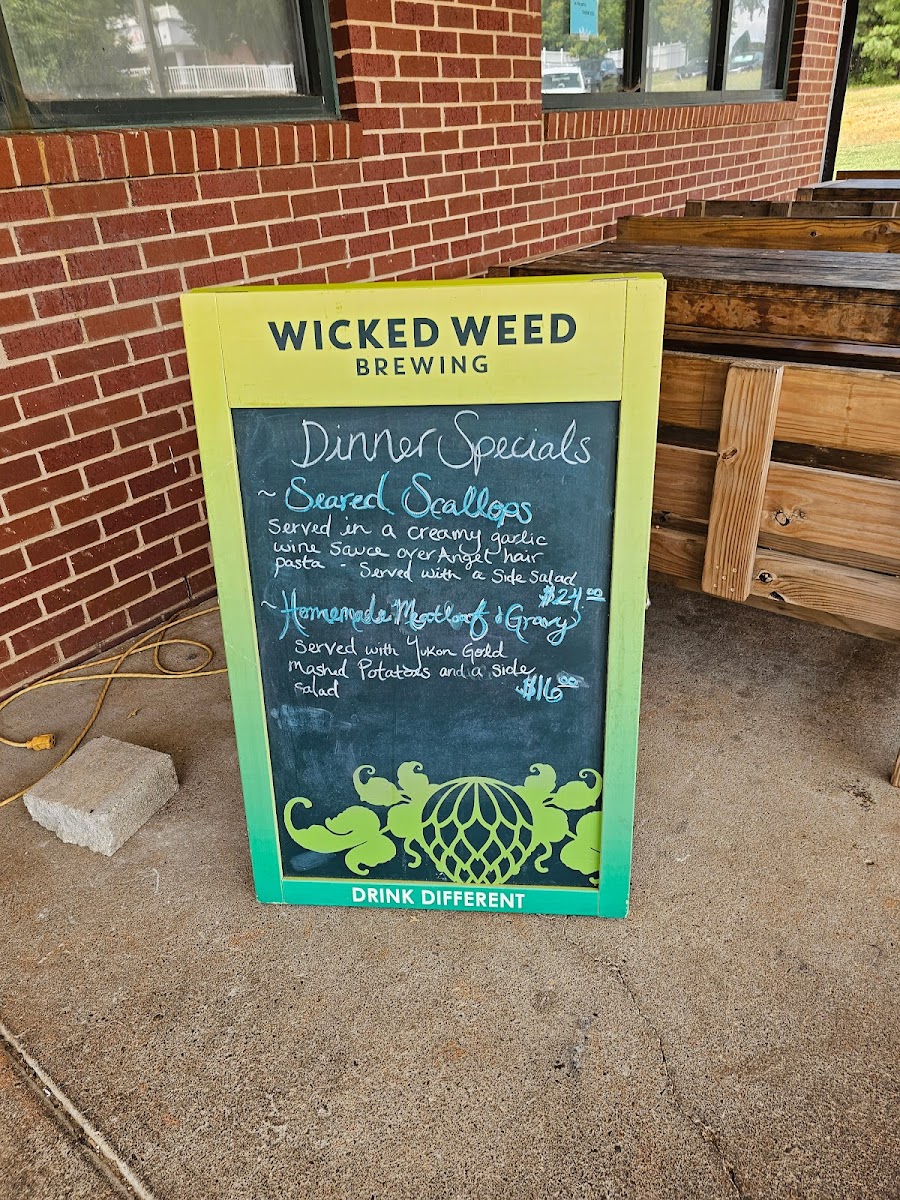 WICKED WEED
BREWING
Dinner Specials
~ Seared Scallops
Served in a creamy garlic
wine sauce over Angel hair
pasta - Served with a side salad
$24.00
~ Homemade Meatloaf & Gravy
Served with Yukon Gold
Mashed Potatoes and a side
salad
$16.00
DRINK DIFFERENT